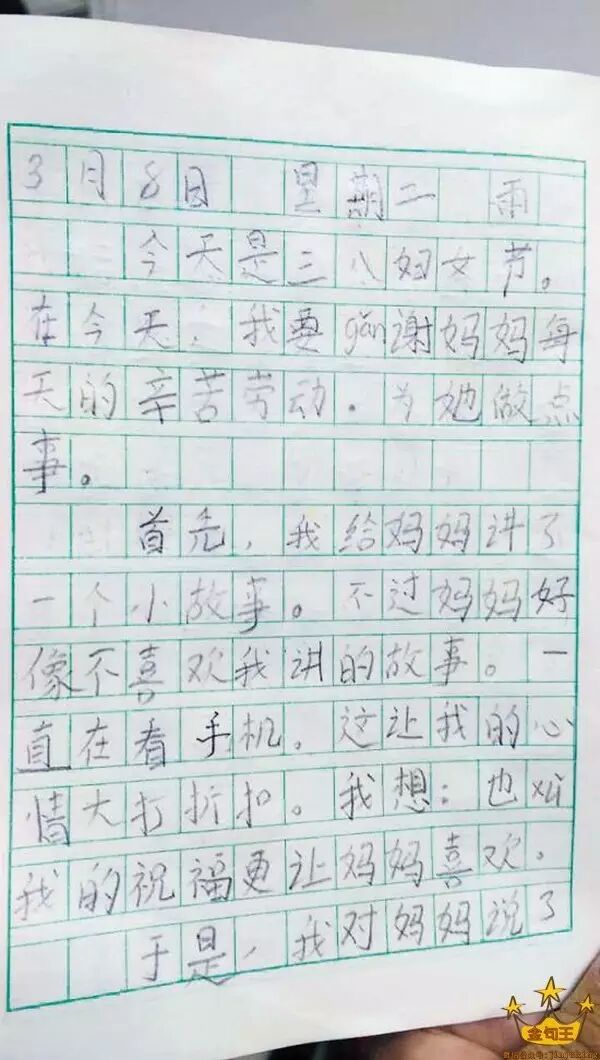 3月8日 星期二 雨
今天是三八妇女节。
在今天，我要gǎn谢妈妈每
天的辛苦劳动．为她做点
事。
首先，我给妈妈讲了
一个小故事。不过妈妈好
像不喜欢我讲的故事。一
直在看手机。这让我的心
情大打折扣。我想：也xǔ
我的祝福更让妈妈喜欢。
于是，我对妈妈说了
金句王